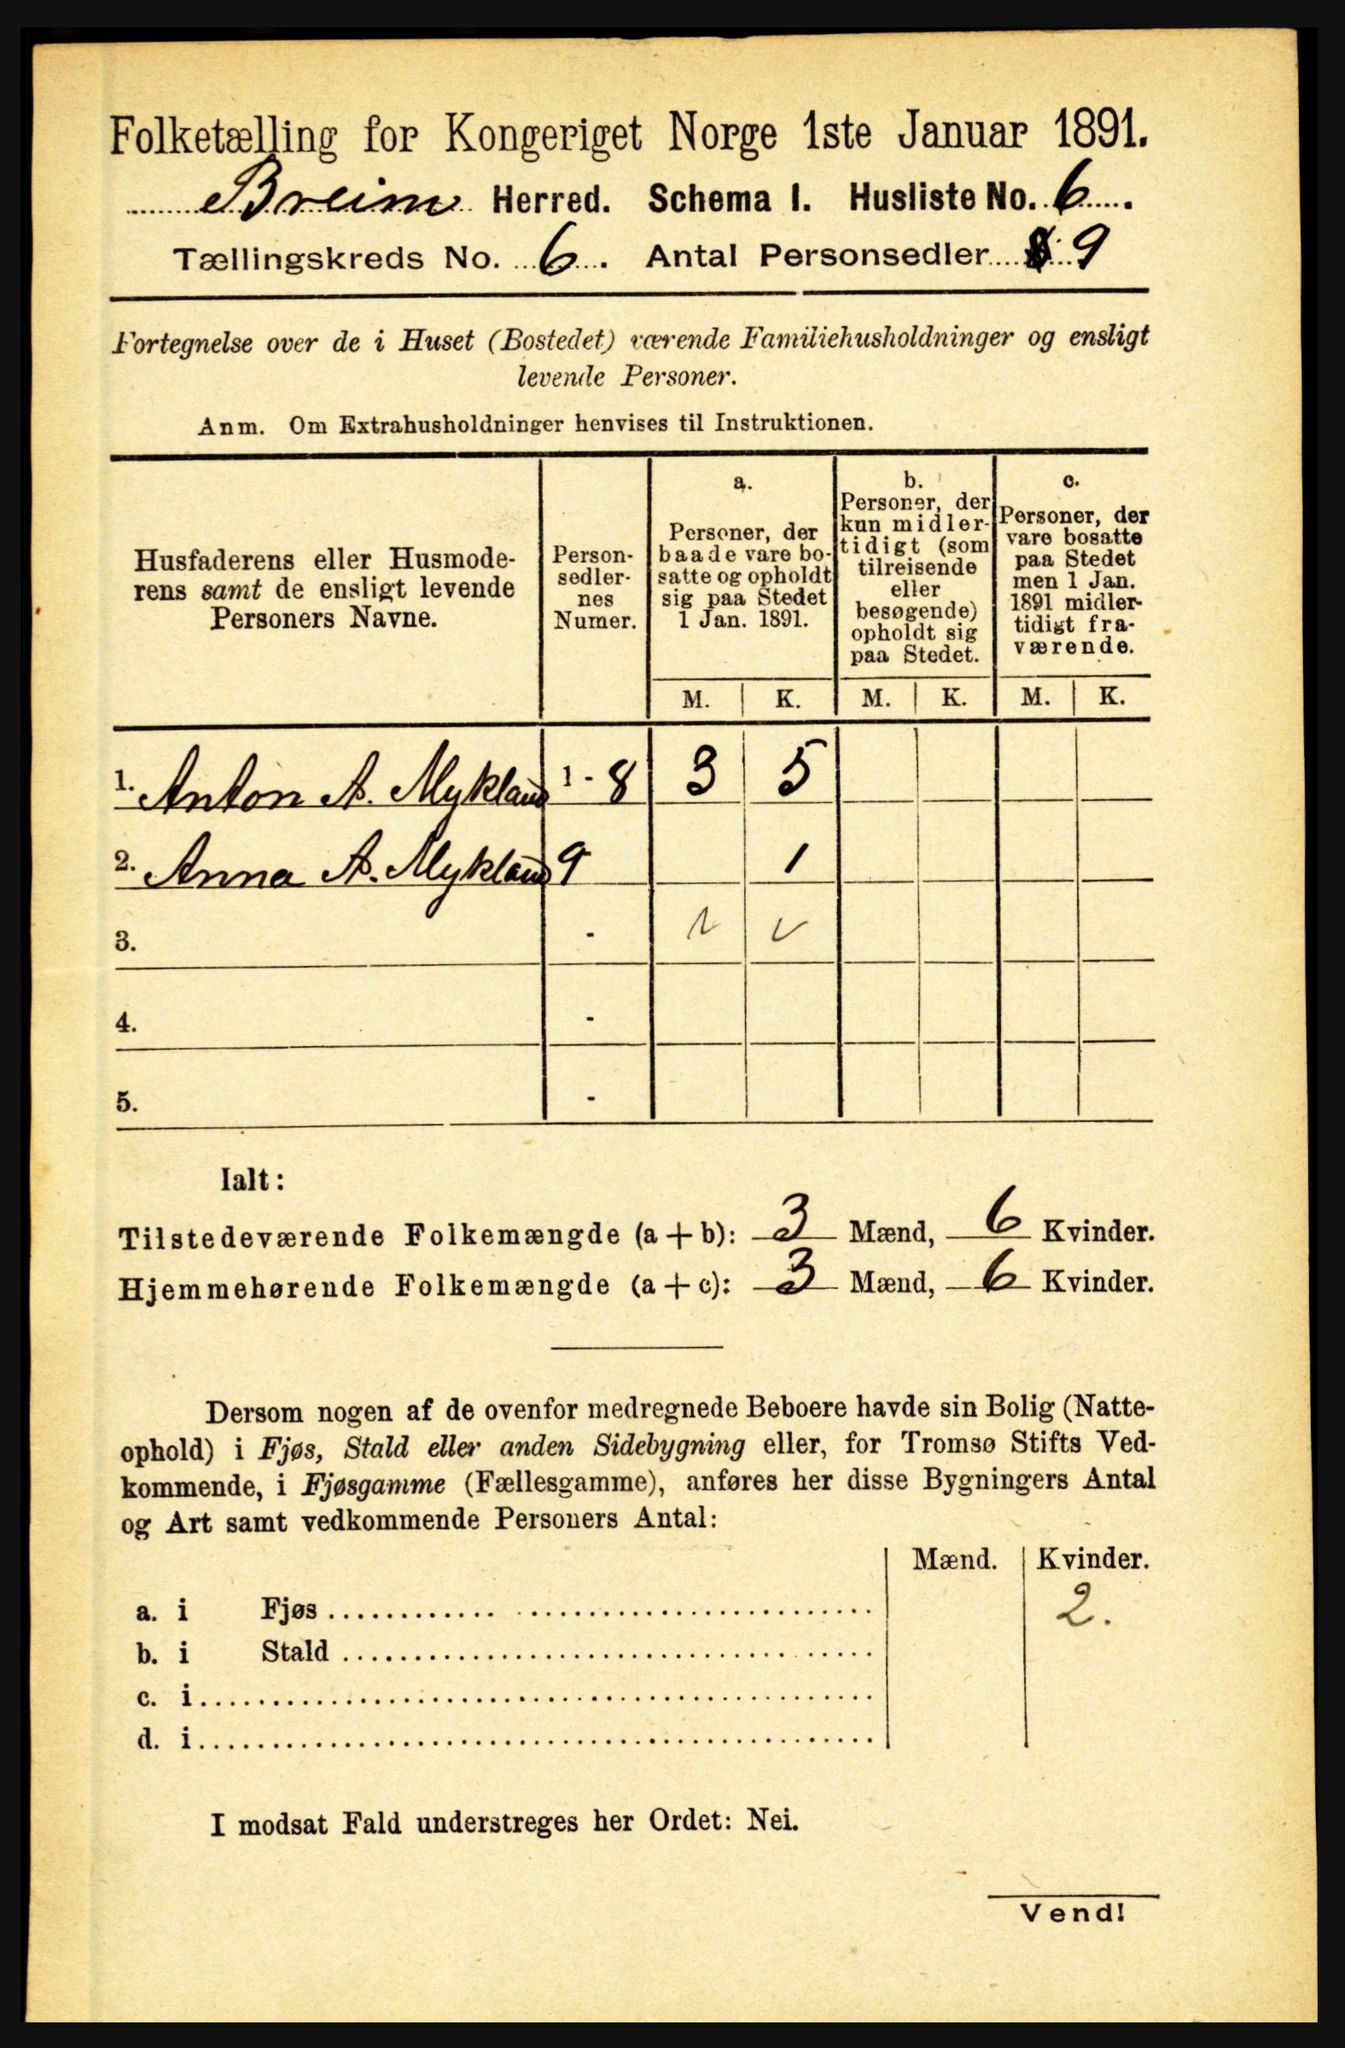 Folketælling for Kongeriget Norge 1ste Januar 1891.
Breim Herred. Schema I. Husliste No. 6.
Tællingskreds No. 6. Antal Personsedler 9
Fortegnelse over de i Huset (Bostedet) værende Familiehusholdninger og ensligt
levende Personer.
Anm. Om Extrahusholdninger henvises til Instruktionen.
Husfaderens eller Husmode-
rens samt de ensligt levende
Personers Navne.
Person-
sedler-
nes
Numer.
a.
Personer, der
baade vare bo-
satte og opholdt
sig paa Stedet
1 Jan. 1891.
b.
Personer, der
kun midler-
tidigt (som
tilreisende
eller
besøgende)
opholdt sig
paa Stedet.
c.
Personer, der
vare bosatte
paa Stedet
men 1 Jan.
1891 midler-
tidigt fra-
værende.
M. K. M. K. M. K.
1. Anton A. Mykland 1 - 8 3 5
2. Anna A. Mykland 9 1
3. -
4. -
5. -
Ialt:
Tilstedeværende Folkemængde (a + b): 3 Mænd, 6 Kvinder.
Hjemmehørende Folkemængde (a + c): 3 Mænd, 6 Kvinder.
Dersom nogen af de ovenfor medregnede Beboere havde sin Bolig (Natte-
ophold) i Fjøs, Stald eller anden Sidebygning eller, for Tromsø Stifts Ved-
kommende, i Fjøsgamme (Fællesgamme), anføres her disse Bygningers Antal
og Art samt vedkommende Personers Antal:
Mænd. Kvinder.
a. i Fjøs 2.
b. i Stald
c. i
d. i
I modsat Fald understreges her Ordet: Nei.
Vend!